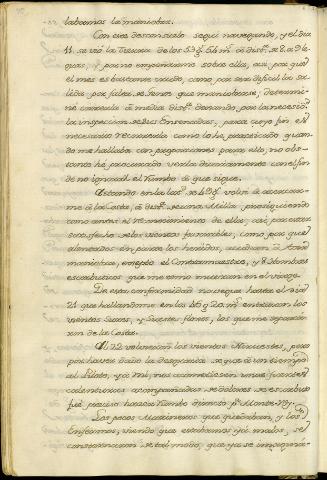 labamos la maniobra.
Con ese desconsuelo seguí navegando, y el dia
11. se vió la Tierra de los 53 g. 54 m. à dist.ª de 8. a 9 le-
guas, y por no empeñarme sobre ella, asi, por que el
mes es bastante crudo, como por ser dificil la sa-
lida por falta de Gente que maniobrase, determi-
né correrla à media dist.ª dexando, por la necesid.
la inspeccion de sus Ensenadas, para cuyo fin es
necesario reconocerla como lo he practicado quan-
do me hallaba con proporciones para ello, no obs-
tante hé procurado verla diariamente con el fin
de no ignorar el Rumbo à que sigue.
Estando en la lat.d de volví à acercar-
me à la Costa, à dist.ª de una Milla prosiguiendo
como antes el reconocimiento de ella, asi por estar
satisfecho de los vientos favorables, como por que
alentados en parte los heridos, acudian à
maniobra, excepto el Contramaestre, y 8 Hombres
escorbuticos que me murieron en el viage.
De esta conformidad navegué hasta el dia
21 que hallandome en la 46 g. 20 m. entraron los
vientos duros, y fuertes, los que me separa-
ron de la Costa.
Al 22 volvieron los vientos Noruestes, pero
por haver dado la desgracia de que à un tiempo
al Piloto, y à mi, nos acometiesen unas fuertes
calenturas acompañadas de dolores de escorbuto
fué preciso hacer Rumbo directo p.ª Monte-Vi.º
Los pocos Marineros que quedaban, y los
Enfermos, viendo que estabamos yà malos, se
consternaron de tal modo, que ya se imagina-